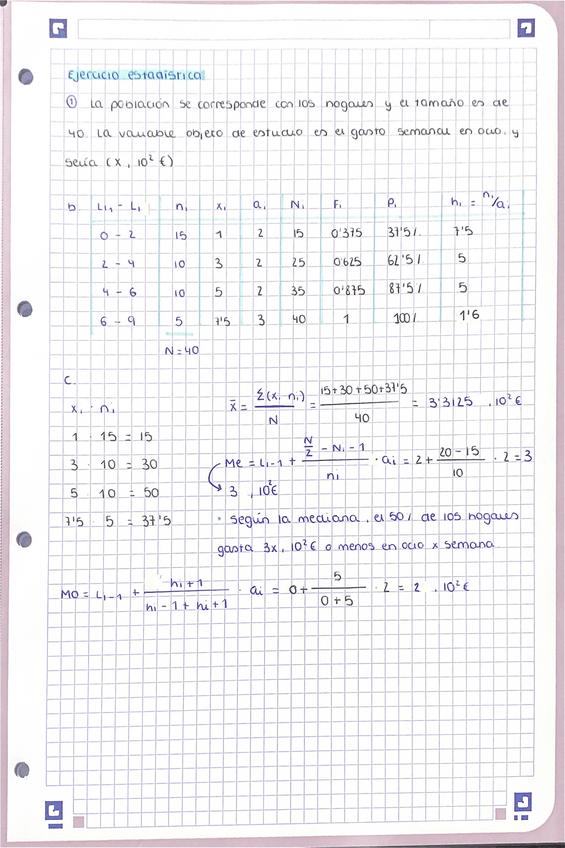 Ejercicio estadística
① La población se corresponde con los hogares y el tamaño es de
40. La variable objeto de estudio es el gasto semanal en ocio, y
sería (x, 10² €)
b. Lᵢ₋₁ - Lᵢ nᵢ xᵢ aᵢ Nᵢ Fᵢ Pᵢ hᵢ = nᵢ/aᵢ
0 - 2 15 1 2 15 0'375 37'5% 7'5
2 - 4 10 3 2 25 0'625 62'5% 5
4 - 6 10 5 2 35 0'875 87'5% 5
6 - 9 5 7'5 3 40 1 100% 1'6
N = 40
C.
xᵢ · nᵢ
1 · 15 = 15
3 · 10 = 30
5 · 10 = 50
7'5 · 5 = 37'5
x̄ = Σ(xᵢ · nᵢ) / N = 15+30+50+37'5 / 40 = 3'3125 , 10² €
Me = Lᵢ₋₁ + (N/2 - Nᵢ - 1) / nᵢ · aᵢ = 2 + (20 - 15) / 10 · 2 = 3
3 , 10² €
· Según la mediana, el 50% de los hogares
gasta 3x, 10² € o menos en ocio x semana
Mo = Lᵢ₋₁ + (hᵢ + 1) / (hᵢ - 1 + hᵢ + 1) · aᵢ = 0 + 5 / (0 + 5) · 2 = 2 , 10² €